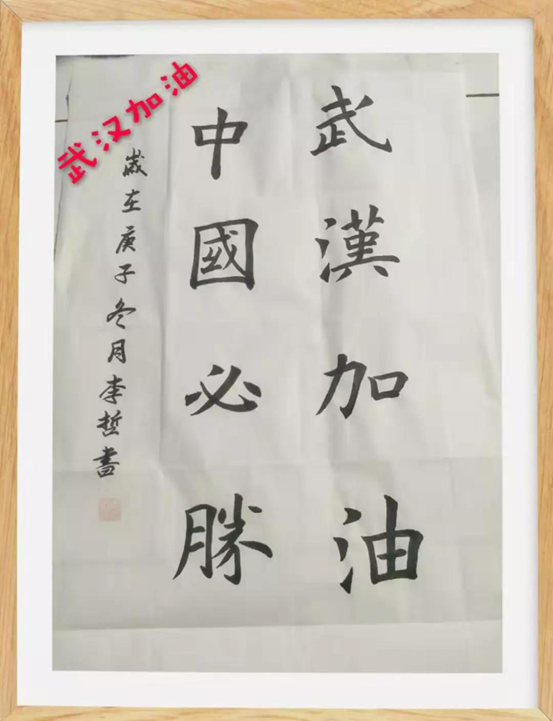 武汉加油
武漢加油
中國必勝
歲在庚子冬月李哲書